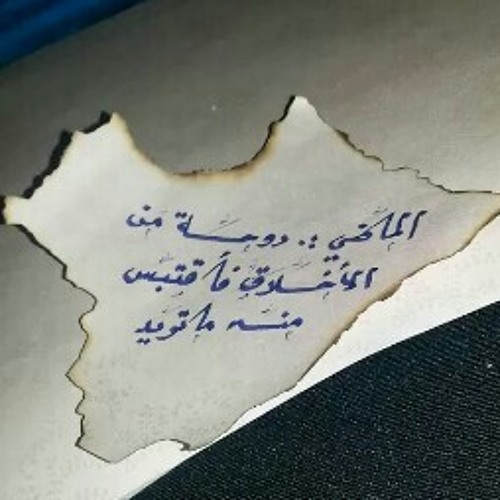 الماضي :. دوحة من
الأخلاق فأقتبس
منه ما تريد